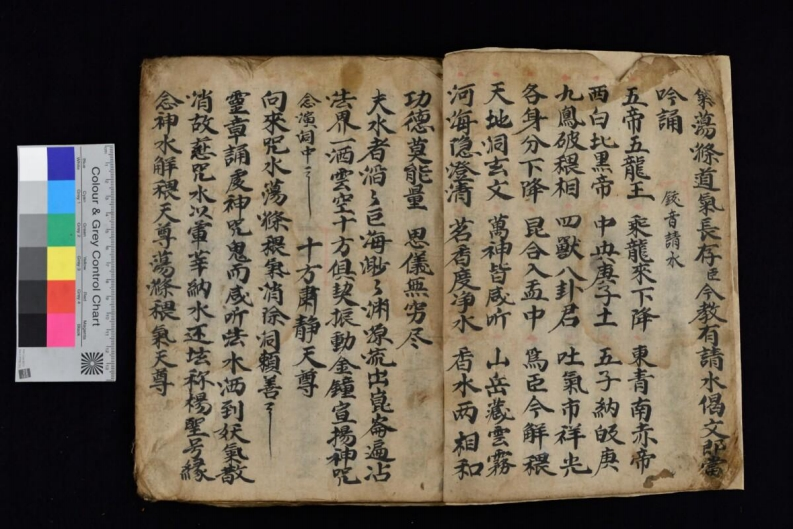 氣蕩滌道氣長存臣今教有請水偈文即當
吟誦 鈸音請水
五帝五龍王 乘龍來下降 東青南赤帝
西白北黑帝 中央庚子土 五子納皈庚
九鳳破穢相 四獸八卦君 吐氣布祥光
各身分下降 昆合入盂中 為臣今解穢
天地洞玄文 萬神皆咸听 山岳藏雲霧
河海隐澄清 茗香度净水 香水两相和
功德莫能量 思儀無穷尽
夫水者滔〻巨海渺〻渊源流出崑崙遍沾
法界一洒雲空十方俱契振動金鐘宣揚神咒
念演洞中〻 十方肅静天尊
向來咒水蕩滌穢氣消除洞頼善〻
靈章誦處神咒鬼而咸听法水洒到妖氣散
消故悲咒水以軍華納水还坛称楊聖号緣
念神水解穢天尊蕩滌穢氣天尊
Colour & Grey Control Chart